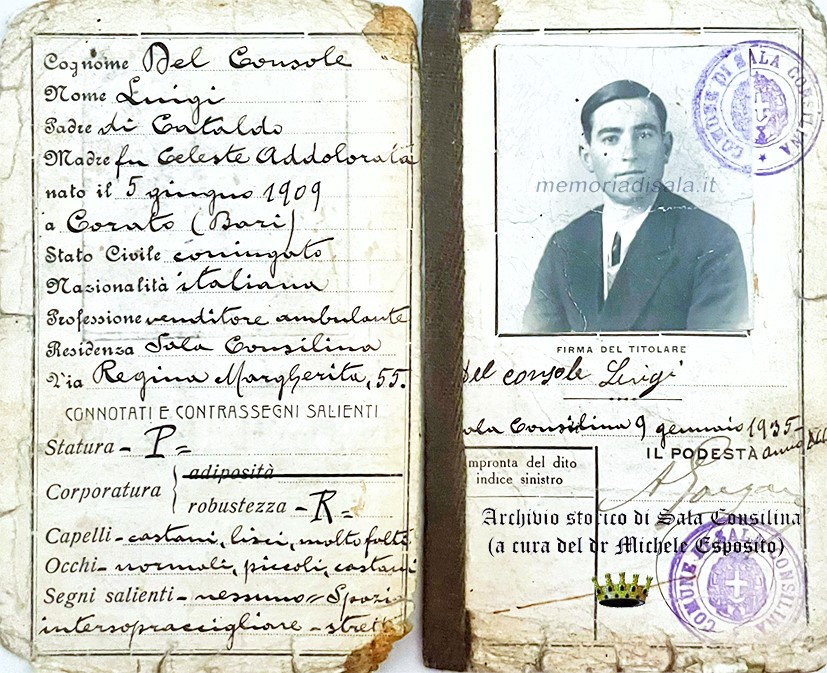 Cognome Del Console
Nome Luigi
Padre di Cataldo
Madre fu Celeste Addolorata
nato il 5 giugno 1909
a Corato (Bari)
Stato Civile coniugato
Nazionalità italiana
Professione venditore ambulante
Residenza Sala Consilina
Via Regina Margherita, 55.
CONNOTATI E CONTRASSEGNI SALIENTI
Statura - P =
Corporatura
adiposità
robustezza - R =
Capelli - castani, lisci, molto folti
Occhi - normali, piccoli, castani
Segni salienti - nessuno = Spazio
intersopraccigliare - stretto
COMUNE DI SALA CONSILINA
memoriadisala.it
FIRMA DEL TITOLARE
Del console Luigi
Sala Consilina 9 gennaio 1935 - anno
IL PODESTÀ
Impronta del dito
indice sinistro
Archivio storico di Sala Consilina
(a cura del dr Michele Esposito)
COMUNE DI SALA CONSILINA